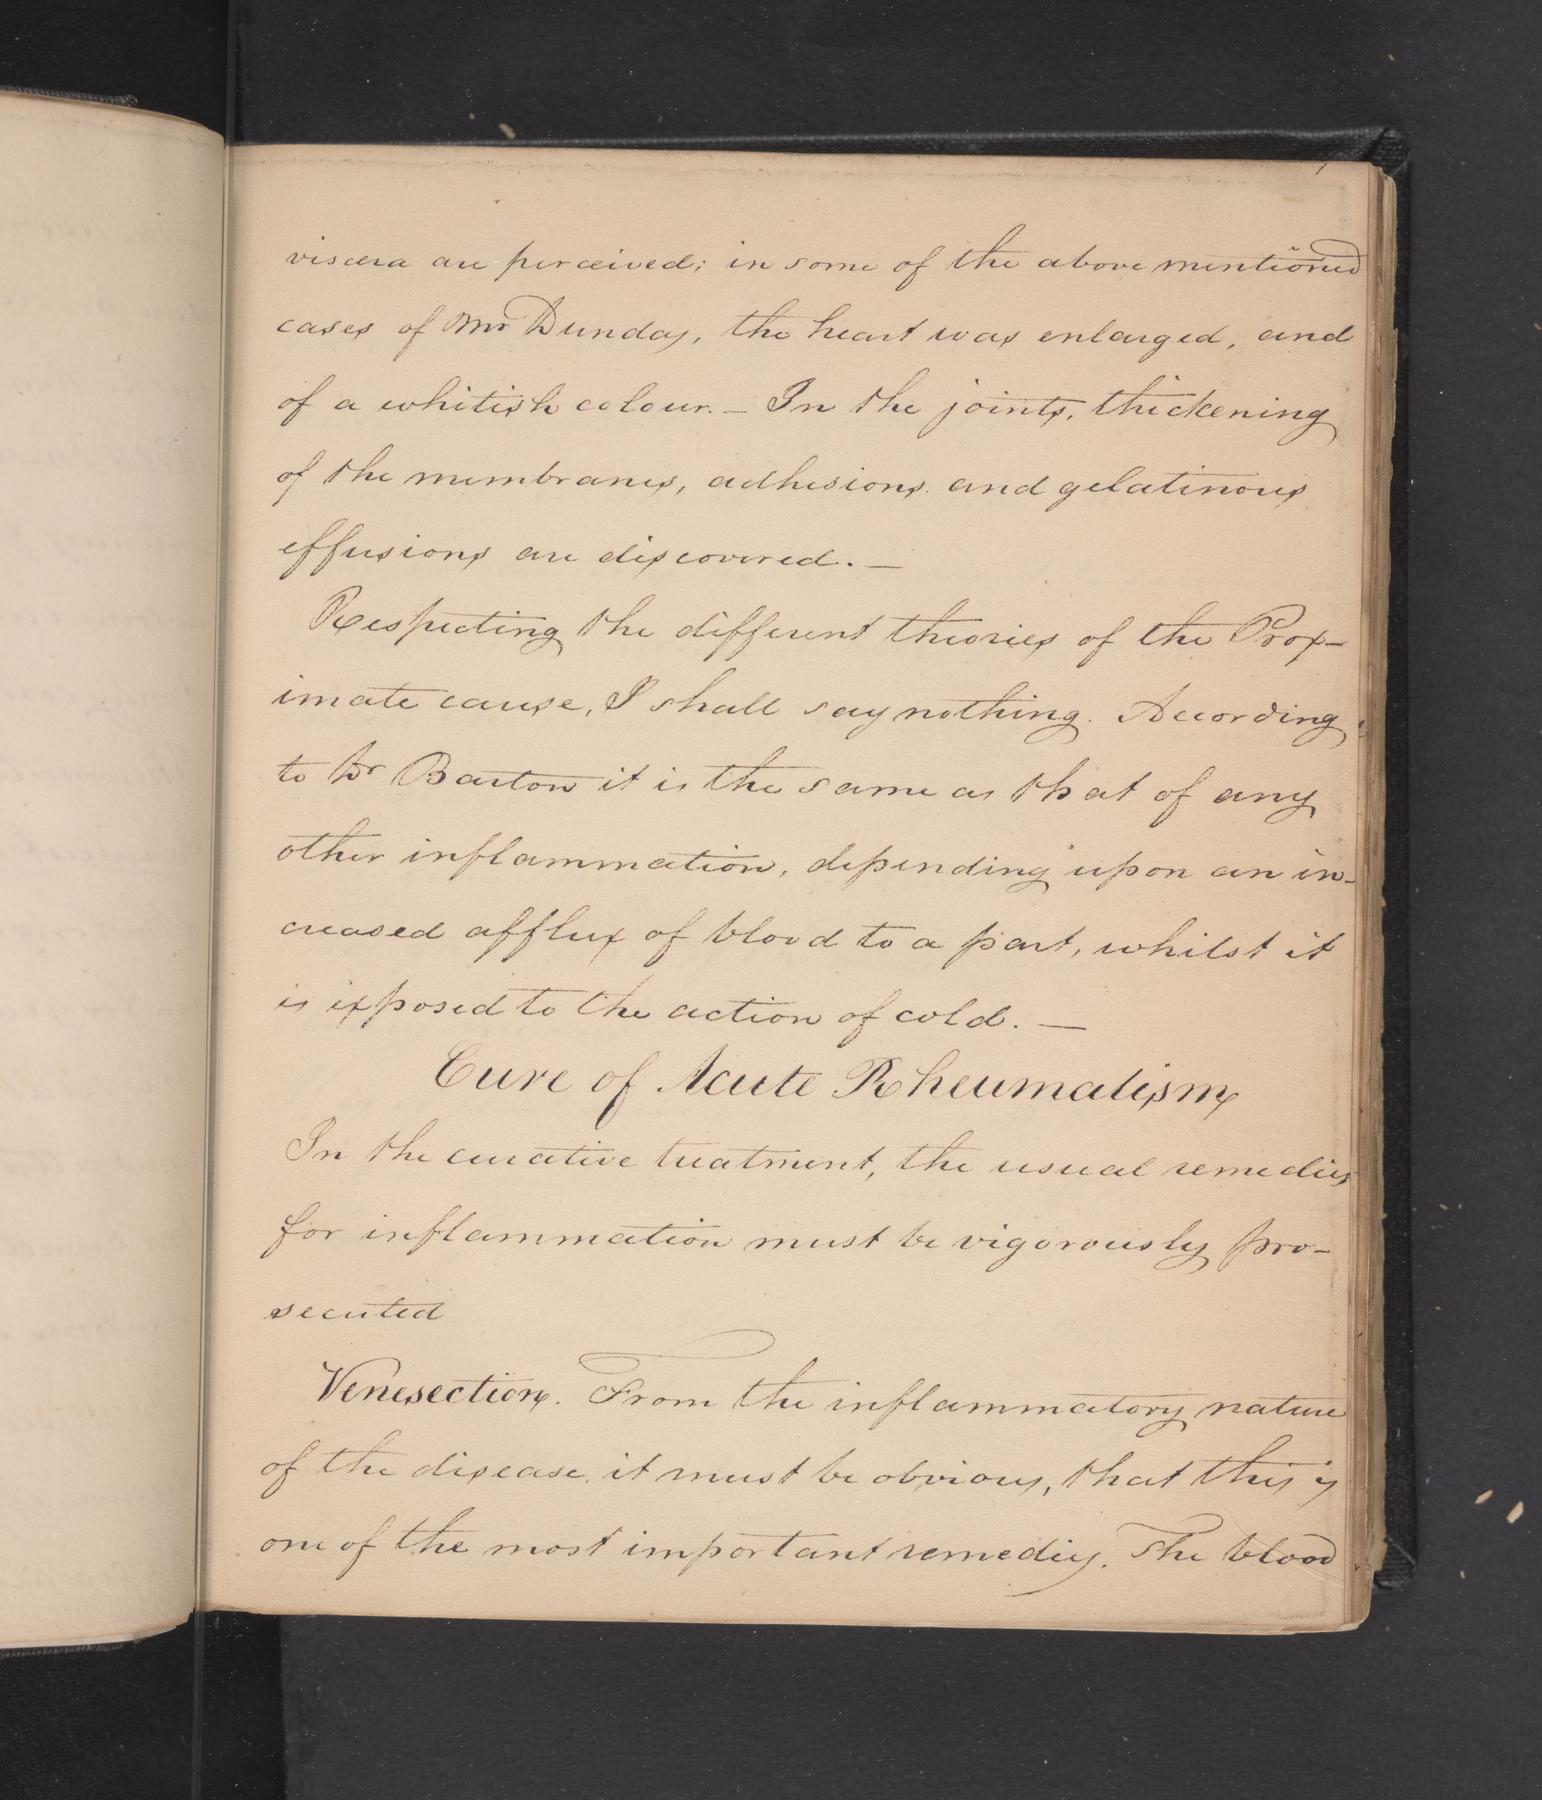 viscera are perceived; in some of the above mentioned
cases of Mr Dundas, the heart was enlarged, and
of a whitish colour. — In the joints, thickening
of the membranes, adhesions and gelatinous
effusions are discovered. —
Respecting the different theories of the Prox-
imate cause, I shall say nothing. According
to Dr Barton it is the same as that of any
other inflammation, depending upon an in-
creased afflux of blood to a part, whilst it
is exposed to the action of cold. —
Cure of Acute Rheumatism
In the curative treatment, the usual remedies
for inflammation must be vigorously pro-
secuted
Venesection. From the inflammatory nature
of the disease, it must be obvious, that this is
one of the most important remedies. The blood